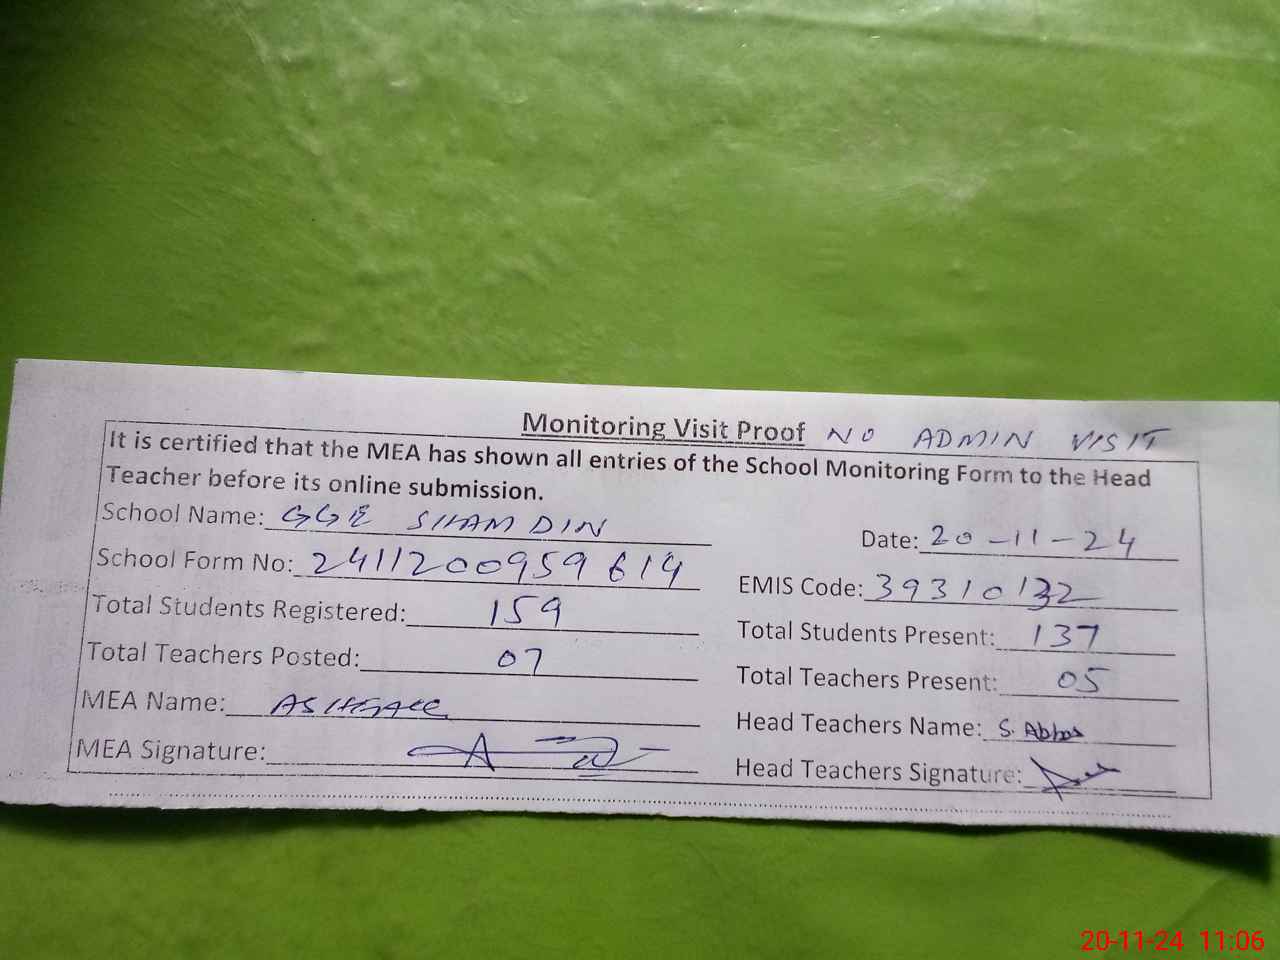 Monitoring Visit Proof NO ADMIN VISIT
It is certified that the MEA has shown all entries of the School Monitoring Form to the Head
Teacher before its online submission.
School Name: GGE SHAM DIN
Date: 20-11-24
School Form No: 2411200959614
EMIS Code: 39310132
Total Students Registered: 159
Total Students Present: 137
Total Teachers Posted: 07
Total Teachers Present: 05
MEA Name:
Head Teachers Name: S. Abbas
MEA Signature:
Head Teachers Signature:
20-11-24 11:06